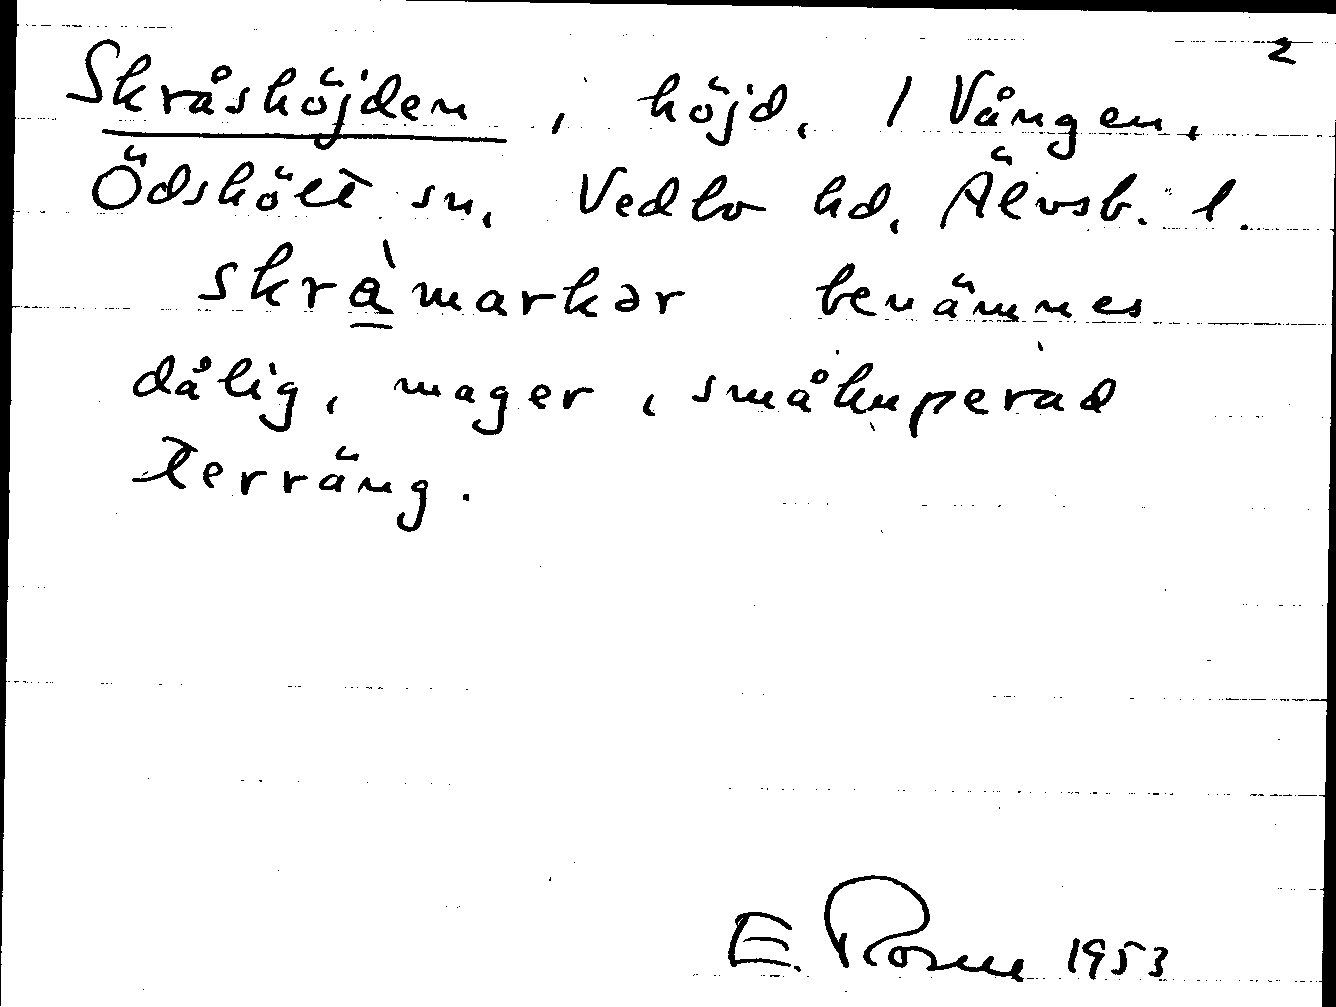 2
Skråshöjden, höjd, 1 Vången,
Ödskölt sn, Vedbo hd, Älvsb. l.
skrà̱markər benämnes
dålig, mager, småkuperad
terräng.
E. Rosell 1953